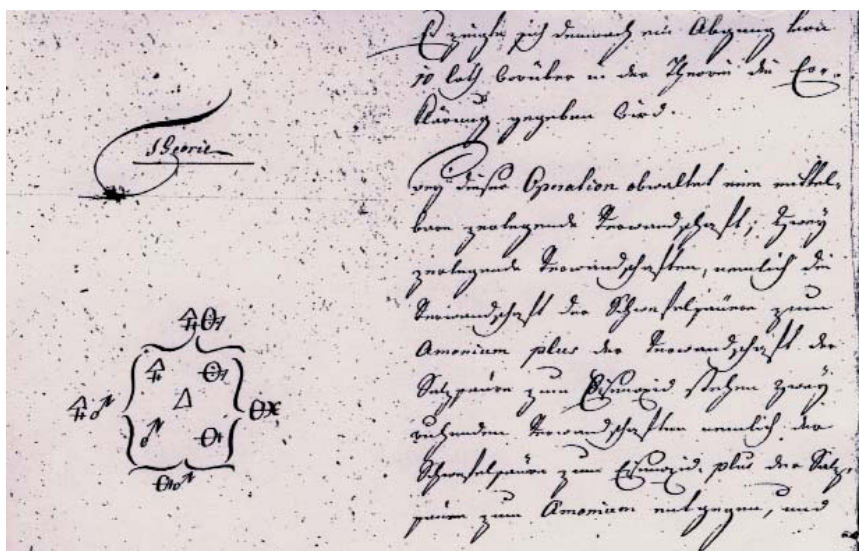 Theorie
Es zeigte sich demnach ein Abgang von
10 loth worüber in der Theorie die Er-
klärung gegeben wird.
Bey dieser Operation obwaltet eine mittel-
bare zerlegende Verwandschaft; Zwey
zerlegende Verwandschaften, nemlich die
Verwandschaft der Schwefelsäure zum
Amonium plus der Verwandschaft der
Salzsäure zum Eisenoxid stehen zwey
ruhenden Verwandschaften nemlich der
Schwefelsäure zum Eisenoxid plus der Salz-
säure zum Amonium entgegen, und